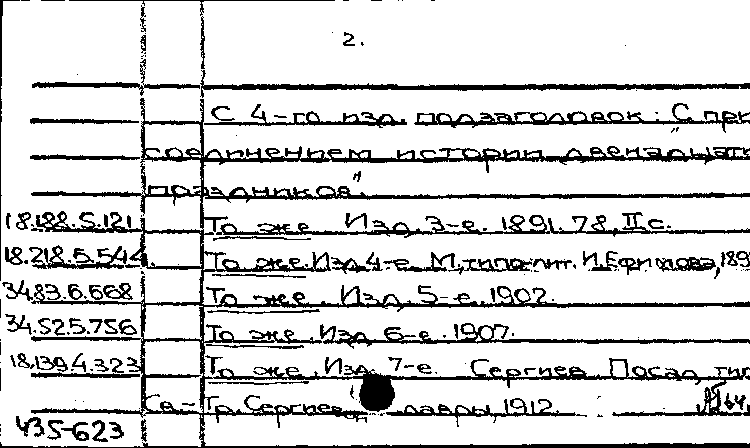 2.
С 4-го изд. подзаголовок: „С при
соединением истории двенадцати
праздников".
18.188.5.121 То же. Изд. 3-е. 1891. 78, II с.
18.218.5.544. То же. Изд. 4-е. М., типо-лит. И. Ефимова, 189
34.83.6.668 То же. Изд. 5-е. 1902.
34.52.5.756 То же. Изд. 6-е. 1907.
18.139.4.323 То же. Изд. 7-е. Сергиев Посад, тип
Св.-Тр. Сергиев лавры, 1912. 64,
435-623